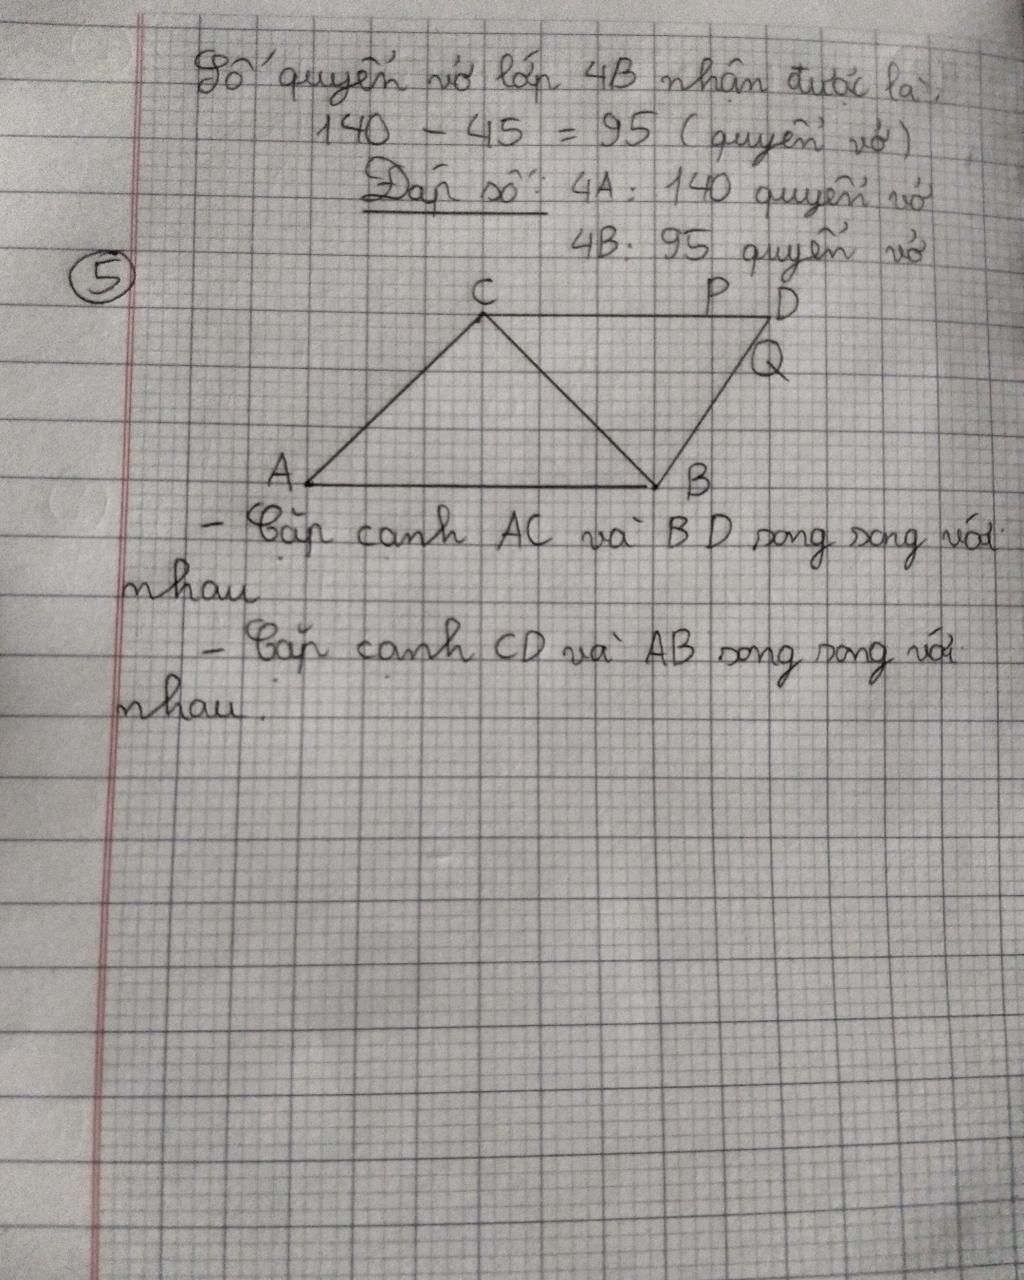 Số quyển vở lớp 4B nhận được là:
140 - 45 = 95 (quyển vở)
Đáp số: 4A: 140 quyển vở
4B: 95 quyển vở
5
C P D
Q
A B
- Cặp cạnh AC và BD song song với
nhau
- Cặp cạnh CD và AB song song với
nhau.